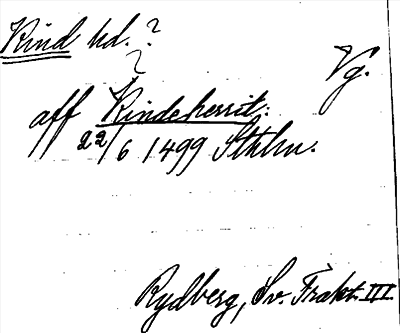 Kind hd. ?
Vg.
aff Kindeherrit:
22/6 1499 Sthlm.
Rydberg, Sv. Trakt. III.